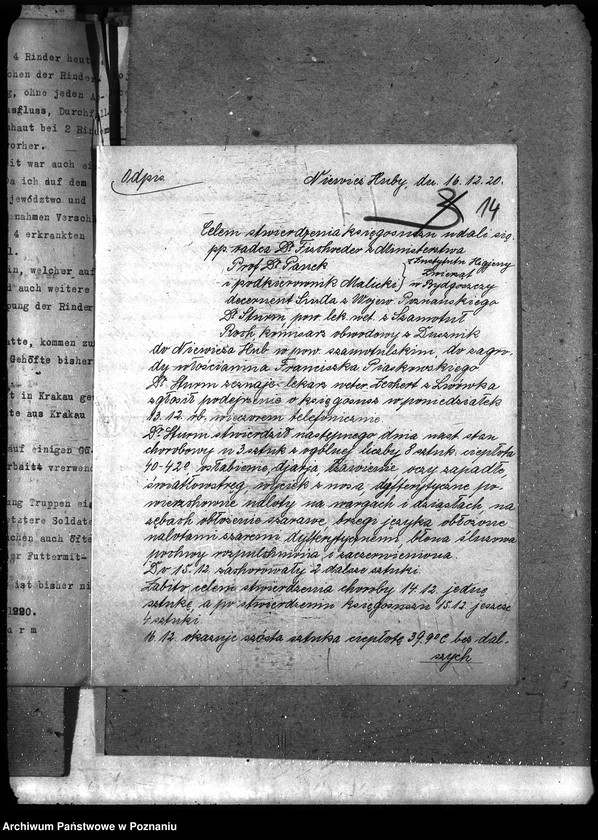 4 Rinder heut
chen der Rinder
g, ohne jeden A
usfluss, Durchfall
nhaut bei 2 Rindern
vorher.
eit war auch ei
a ich auf dem
jewództwo und
snahmen Versch
4 erkrankten
l.
in, welcher auf
d auch weitere
pung der Rinder
atte, kommen zu
Gehöfte bisher
t in Krakau gew
te aus Krakau
auf einiges Gü-
rbaitt verwend
ung Truppen eig
etztere Soldate
chen auch öfte
gr Futtermit-
eist bisher ni
1920.
u r m
Odpis
Niewierz Huby dn. 16.12.20.
14
Celem stwierdzenia księgosuszu udali się
pp. radca Dr Fischoeder z Ministerstwa
Prof Dr Panek
z Instytutu Higjeny
i podkierownik Malicki
Zwierząt
w Bydgoszczy
decernent Suzda z Wojew. Poznańskiego
Dr Sturm pow. lek. wet. z Szamotuł
Roch komisarz obwodowy z Dusznik
do Niewierza Hub w pow. szamotulskim, do zagro-
dy włościanina Franciszka Piaskowskiego
Dr. Sturm zeznaje: lekarz weter. Echert z Lwówka
zgłosił podejrzenie o księgosusz w poniedziałek
13.12. rb. wieczorem telefonicznie.
Dr Sturm stwierdził następnego dnia nast. stan
chorobowy u 3 sztuk z ogólnej liczby 8 sztuk. ciepłota
40-42°, osłabienie, djarja, łzawienie, oczy zapadłe,
światłowstręt, wyciek z nosa, dyfterytyczne po-
wierzchowne naloty na wargach i dziąsłach, na
zębach obłożenie szarawe, brzegi języka obłożone
nalotami szaremi dyfterytycznemi, błona śluzowa
pochwy rozpulchniona i zaczerwieniona.
Do 15.12. zachorowały 2 dalsze sztuki.
Zabito celem stwierdzenia choroby 14.12. jedną
sztukę, a po stwierdzeniu księgosuszu 15.12. jeszcze
4 sztuki
16.12. okazuje szósta sztuka ciepłotę 39,9°C bez dal-
szych
Archiwum Państwowe w Poznaniu